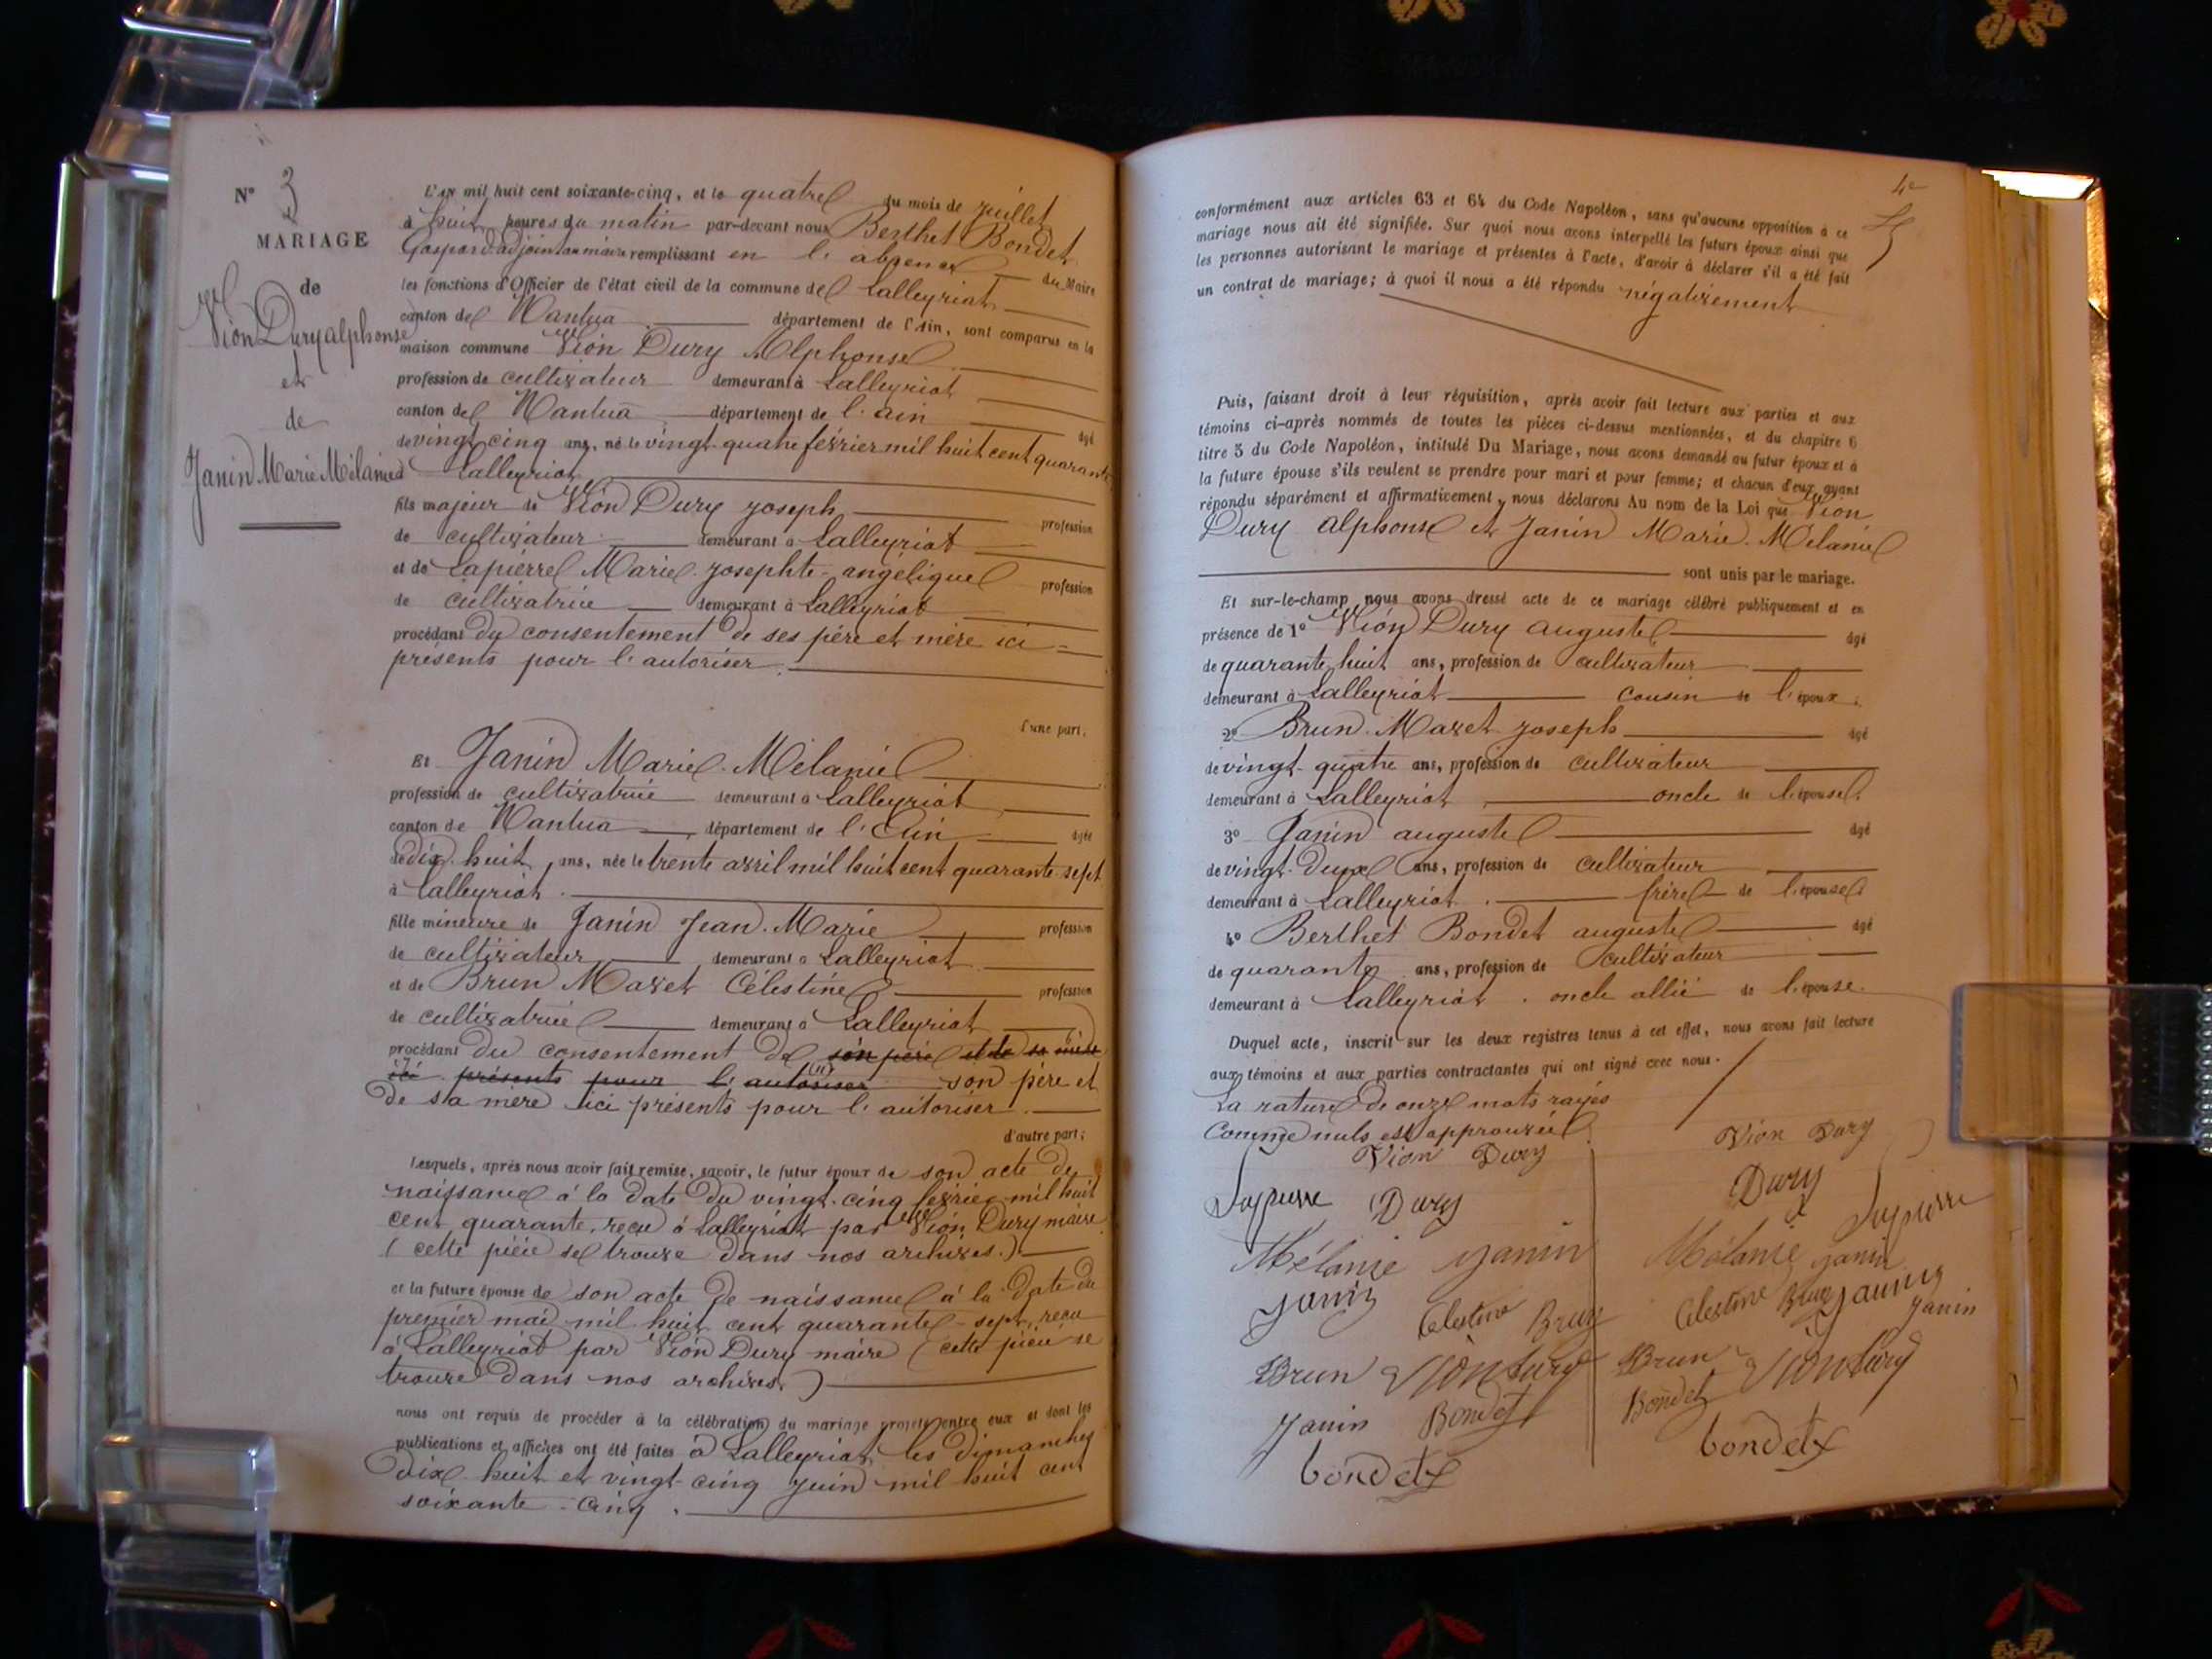 N° 3
MARIAGE
de
Vion Dury alphonse
et
de
Janin Marie Mélanie
L'AN mil huit cent soixante-cinq, et le quatre du mois de juillet
à huit heures du matin par-devant nous Berthet Bondet
Gaspard adjoint au maire remplissant en l'absence du Maire
les fonctions d'Officier de l'état civil de la commune de Lalleyriat
canton de Nantua département de l'Ain, sont comparus en la
maison commune Vion Dury Alphonse
profession de cultivateur demeurant à Lalleyriat
canton de Nantua département de l'ain âgé
de vingt cinq ans, né le vingt-quatre février mil huit cent quarante
à Lalleyriat
fils majeur de Vion Dury joseph profession
de cultivateur demeurant à Lalleyriat
et de Lapierre Marie josephte-angélique profession
de cultivatrice demeurant à Lalleyriat
procédant du consentement de ses père et mère ici
présents pour l'autoriser.
d'une part,
Et Janin Marie-Mélanie
profession de cultivatrice demeurant à Lalleyriat
canton de Nantua département de l'Ain âgée
de dix-huit ans, née le trente avril mil huit cent quarante-sept
à Lalleyriat
fille mineure de Janin Jean-Marie profession
de cultivateur demeurant à Lalleyriat
et de Brun Mavet Célestine profession
de cultivatrice demeurant à Lalleyriat
procédant du consentement de son père et de sa mère
ici présents pour l'autoriser son père et
de sa mère ici présents pour l'autoriser.
d'autre part;
Lesquels, après nous avoir fait remise, savoir, le futur époux de son acte de
naissance à la date du vingt-cinq février mil huit
cent quarante, reçu à Lalleyriat par Vion Dury maire
(cette pièce se trouve dans nos archives.)
et la future épouse de son acte de naissance à la date du
premier mai mil huit cent quarante-sept, reçu
à Lalleyriat par Vion Dury maire (cette pièce se
trouve dans nos archives)
nous ont requis de procéder à la célébration du mariage projeté entre eux et dont les
publications et affiches ont été faites à Lalleyriat les dimanches
dix-huit et vingt-cinq juin mil huit cent
soixante-cinq.
conformément aux articles 63 et 64 du Code Napoléon, sans qu'aucune opposition à ce
mariage nous ait été signifiée. Sur quoi nous avons interpellé les futurs époux ainsi que
les personnes autorisant le mariage et présentes à l'acte, d'avoir à déclarer s'il a été fait
un contrat de mariage; à quoi il nous a été répondu négativement
Puis, faisant droit à leur réquisition, après avoir fait lecture aux parties et aux
témoins ci-après nommés de toutes les pièces ci-dessus mentionnées, et du chapitre 6
titre 5 du Code Napoléon, intitulé Du Mariage, nous avons demandé au futur époux et à
la future épouse s'ils veulent se prendre pour mari et pour femme; et chacun d'eux ayant
répondu séparément et affirmativement, nous déclarons Au nom de la Loi que Vion
Dury alphonse et Janin Marie-Mélanie
sont unis par le mariage.
Et sur-le-champ nous avons dressé acte de ce mariage célébré publiquement et en
présence de 1° Vion Dury auguste âgé
de quarante huit ans, profession de cultivateur
demeurant à Lalleyriat cousin de l'époux.
2° Brun-Mavet joseph âgé
de vingt-quatre ans, profession de cultivateur
demeurant à Lalleyriat oncle de l'épouse.
3° Janin auguste âgé
de vingt-deux ans, profession de cultivateur
demeurant à Lalleyriat frère de l'épouse
4° Berthet Bondet auguste âgé
de quarante ans, profession de cultivateur
demeurant à Lalleyriat oncle allié de l'épouse.
Duquel acte, inscrit sur les deux registres tenus à cet effet, nous avons fait lecture
aux témoins et aux parties contractantes qui ont signé avec nous.
La rature de onze mots rayés
comme nuls est approuvée
Vion Dury Vion Dury
Lapierre Dury Dury Lapierre
Mélanie Janin Mélanie Janin
Janin Célestine Brun Célestine Brun Janin
Janin
Brun Vion Dury Brun Vion Dury
Janin Bondet Bondet
bondet bondet